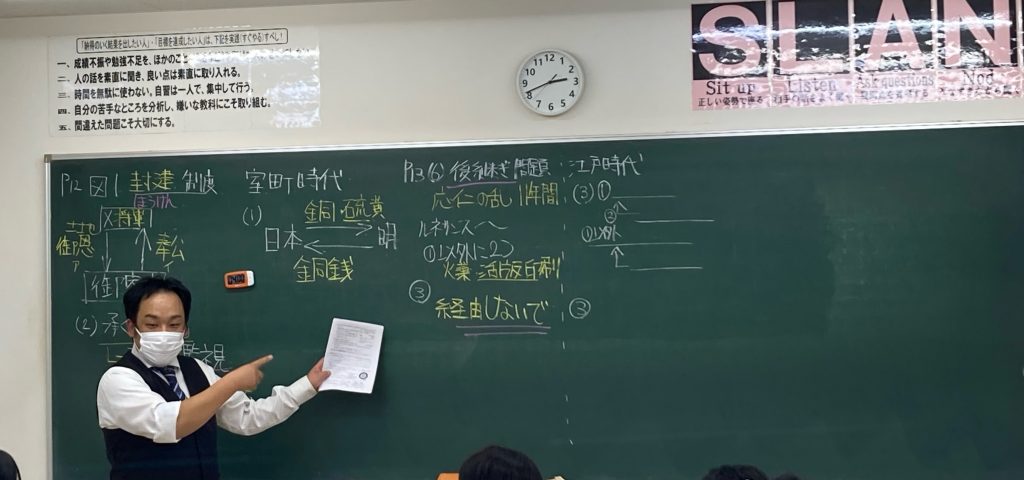 「納得のいく結果を出したい人」・「目標を達成したい人」は、下記を実践(すぐやる)すべし!
一、成績不振や勉強不足を、ほかのこと
二、人の話を素直に聞き、良い点は素直に取り入れる。
三、時間を無駄に使わない。自習は一人で、集中して行う。
四、自分の苦手なところを分析し、嫌いな教科にこそ取り組む。
五、間違えた問題こそ大切にする。
12 1 2 3 4 5 6 7 8 9 10 11
SLAN
Sit up
正しい姿勢で座る
Listen
Ask questions
Nod
P12 図1 封建制度
ほうけん
X 将軍
土地
御恩
ア
奉公
イ
御家
(2) 承
監視
室町時代
(1)
銅・硫黄
日本
明
銅銭
P13(6) 後継ぎ問題
応仁の乱 11年間
ルネサンス〜
①以外に2つ
火薬・活版印刷
③
経由しないで
江戸時代
(3) ①
②
①以外
③